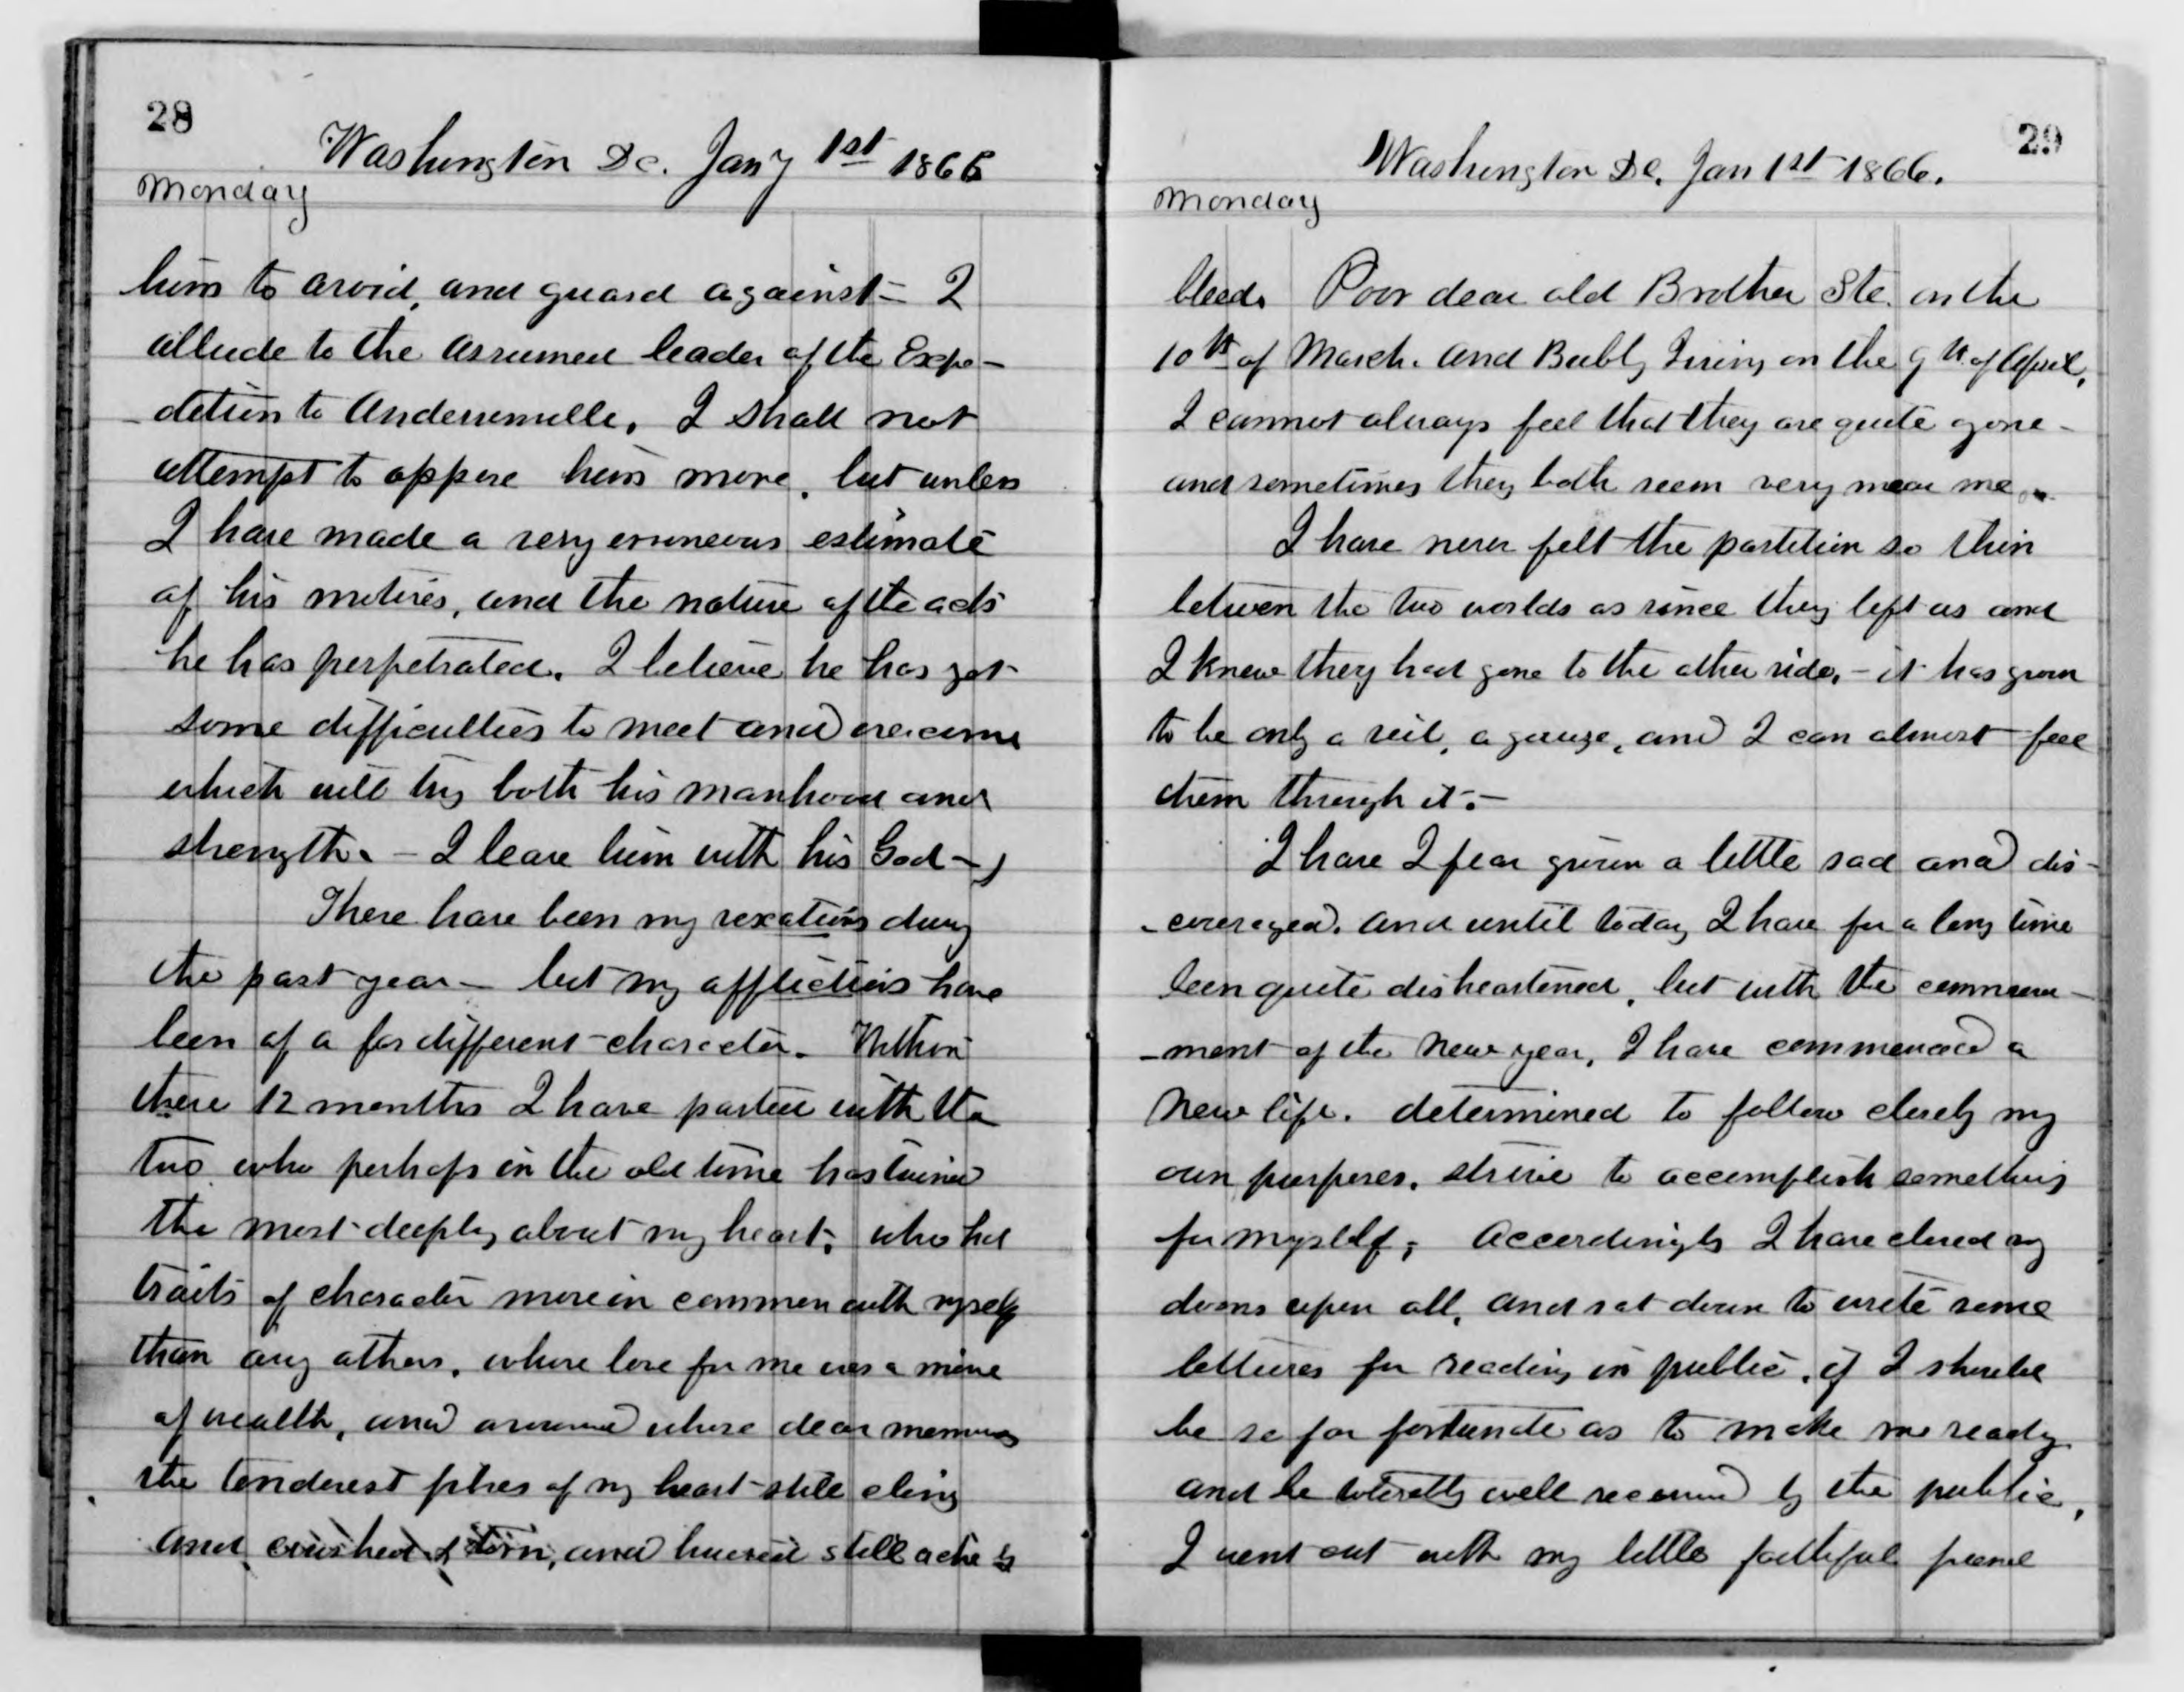 28
Washington Dc. Jany 1st 1866
Monday
him to avoid, and guard against - I
allude to the assumed leader of the Expe-
-dition to Andersonville, I shall not
attempt to oppose him more, but unless
I have made a very erroneous estimate
of his motives, and the nature of the acts
he has perpetrated. I believe he has yet
some difficulties to meet and overcome
which will try both his manhood and
strength. - I leave him with his God -
There have been my vexations during
the past year - but my afflictions have
been of a far different character. Within
these 12 months I have parted with the
two who perhaps in the old time has twined
the most deeply about my heart, who had
traits of character more in common with myself
than any others, whose love for me was a mine
of wealth, and around whose dear memories
the tenderest fibres of my heart still cling
and crushed & torn, and bruised still ache &
29
Washington Dc. Jan 1st 1866.
Monday
bleeds Poor dear old Brother Ste. on the
10th of March. and Bubby Irving on the 9th of April,
I cannot always feel that they are quite gone -
and sometimes they both seem very near me
I have never felt the partition so thin
between the two worlds as since they left us and
I knew they had gone to the other side, - it has grown
to be only a veil, a gauze, and I can almost feel
them through it. -
I have I fear grown a little sad and dis-
-couraged. and until today I have for a long time
been quite disheartened, but with the commence-
-ment of the New year, I have commenced a
New life. determined to follow closely my
own purposes. strive to accomplish something
for myself; Accordingly I have closed my
doors upon all, and sat down to write some
lectures for reading in public, if I should
be so far fortunate as to make me ready
and be tolerably well received by the public,
I went out with my little faithful friend